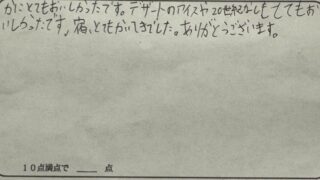 かにとてもおいしかったです。デザートのアイスや20世紀なしもとてもお
いしかったです。宿、とてもかいてきでした。ありがとうございます。
10点満点で ____ 点